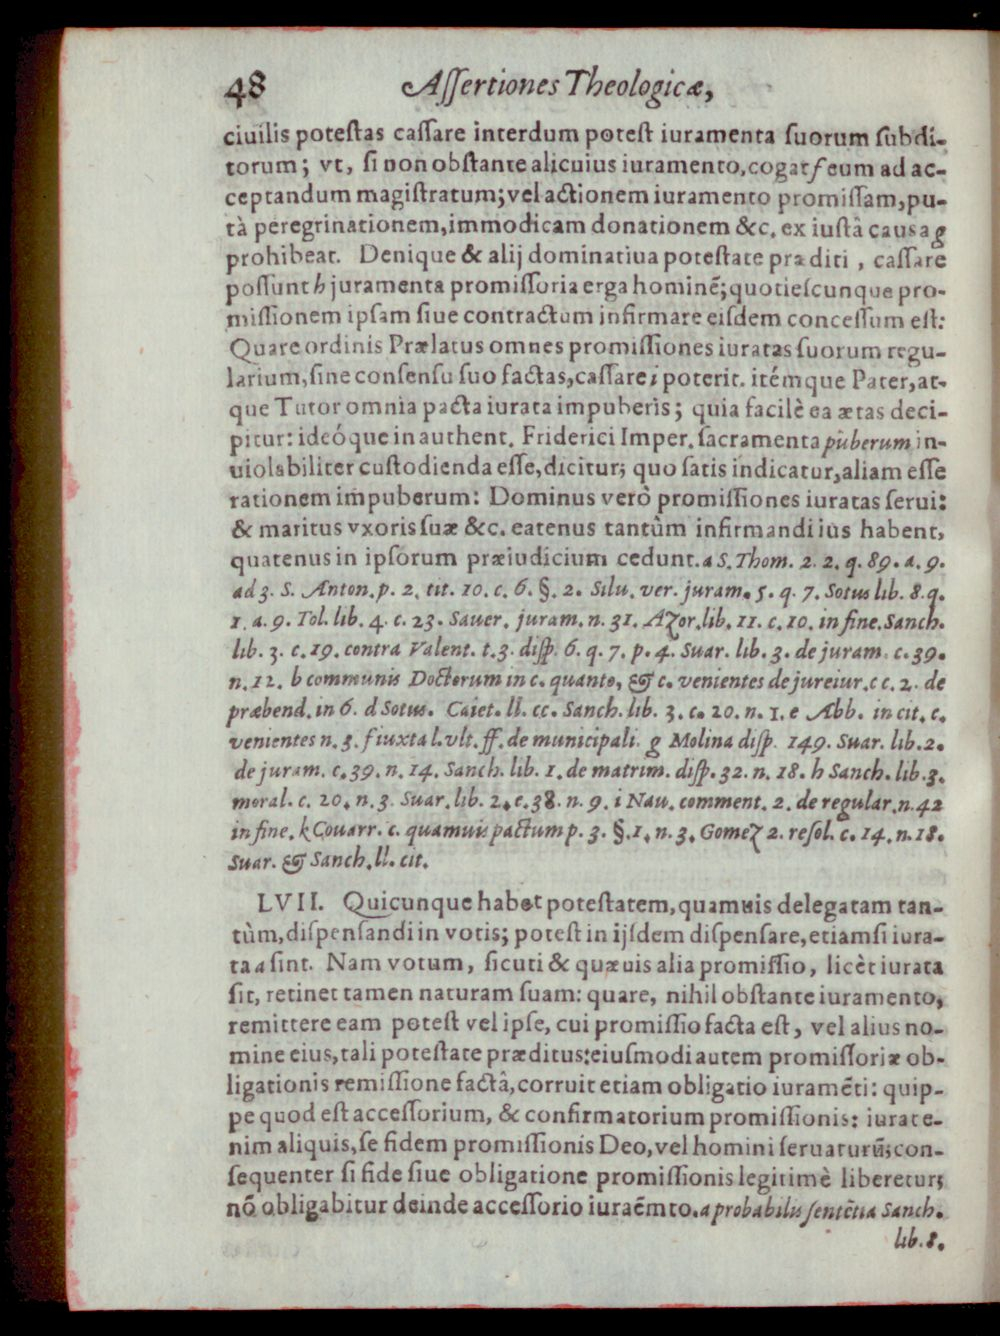 48 Aſſertiones Theologicæ,
ciuilis poteſtas caſſare interdum poteſt iuramenta ſuorum ſubdi-
torum; vt, ſi non obſtante alicuius iuramento, cogat f eum ad ac-
ceptandum magiſtratum; vel actionem iuramento promiſſam, pu-
tà peregrinationem, immodicam donationem &c. ex iuſtâ causa g
prohibeat. Denique & alij dominatiua poteſtate præditi, caſſare
poſſunt h juramenta promiſſoria erga hominẽ; quotieſcunque pro-
miſſionem ipſam ſiue contractum infirmare eiſdem conceſſum eſt:
Quare ordinis Prælatus omnes promiſſiones iuratas ſuorum regu-
larium, ſine conſenſu ſuo factas, caſſare i poterit. itémque Pater, at-
que Tutor omnia pacta iurata impuberis; quia facilè ea ætas deci-
pitur: ideóque in authent. Friderici Imper. ſacramenta puberum in-
uiolabiliter cuſtodienda eſſe, dicitur; quo ſatis indicatur, aliam eſſe
rationem impuberum: Dominus verò promiſſiones iuratas ſerui:
& maritus vxoris ſuæ &c. eatenus tantùm infirmandi ius habent,
quatenus in ipſorum præiudicium cedunt. a S. Thom. 2. 2. q. 89. a. 9.
ad 3. S. Anton. p. 2. tit. 10. c. 6. §. 2. Silu. ver. juram. 5. q. 7. Sotus lib. 8. q.
1. a. 9. Tol. lib. 4. c. 23. Sauer. juram. n. 31. Azor. lib. 11. c. 10. in fine. Sanch.
lib. 3. c. 19. contra Valent. t. 3. diſp. 6. q. 7. p. 4. Suar. lib. 3. de juram. c. 39.
n. 12. b communis Doctorum in c. quanto, & c. venientes de jureiur. c c. 2. de
præbend. in 6. d Sotus. Caiet. ll. cc. Sanch. lib. 3. c. 20. n. 1. e Abb. in cit. c.
venientes n. 3. f iuxta l. vlt. ff. de municipali. g Molina diſp. 149. Suar. lib. 2.
de juram. c. 39. n. 14. Sanch. lib. 1. de matrim. diſp. 32. n. 18. h Sanch. lib. 3.
moral. c. 20. n. 3. Suar. lib. 2. c. 38. n. 9. i Nau. comment. 2. de regular. n. 42
in fine. k Couarr. c. quamuis pactum p. 3. §. 1. n. 3. Gomez 2. reſol. c. 14. n. 18.
Suar. & Sanch. ll. cit.
LVII. Quicunque habet poteſtatem, quamuis delegatam tan-
tùm, diſpenſandi in votis; poteſt in ijſdem diſpenſare, etiamſi iura-
ta a ſint. Nam votum, ſicuti & quæuis alia promiſſio, licèt iurata
ſit, retinet tamen naturam ſuam: quare, nihil obſtante iuramento,
remittere eam poteſt vel ipſe, cui promiſſio facta eſt, vel alius no-
mine eius, tali poteſtate præditus: eiuſmodi autem promiſſoriæ ob-
ligationis remiſſione factâ, corruit etiam obligatio iuramẽti: quip-
pe quod eſt acceſſorium, & confirmatorium promiſſionis: iurat e-
nim aliquis, ſe fidem promiſſionis Deo, vel homini ſeruaturũ; con-
ſequenter ſi fide ſiue obligatione promiſſionis legitimè liberetur;
nõ obligabitur deinde acceſſorio iuraẽmto. a probabilis ſentẽtia Sanch.
lib. 8.